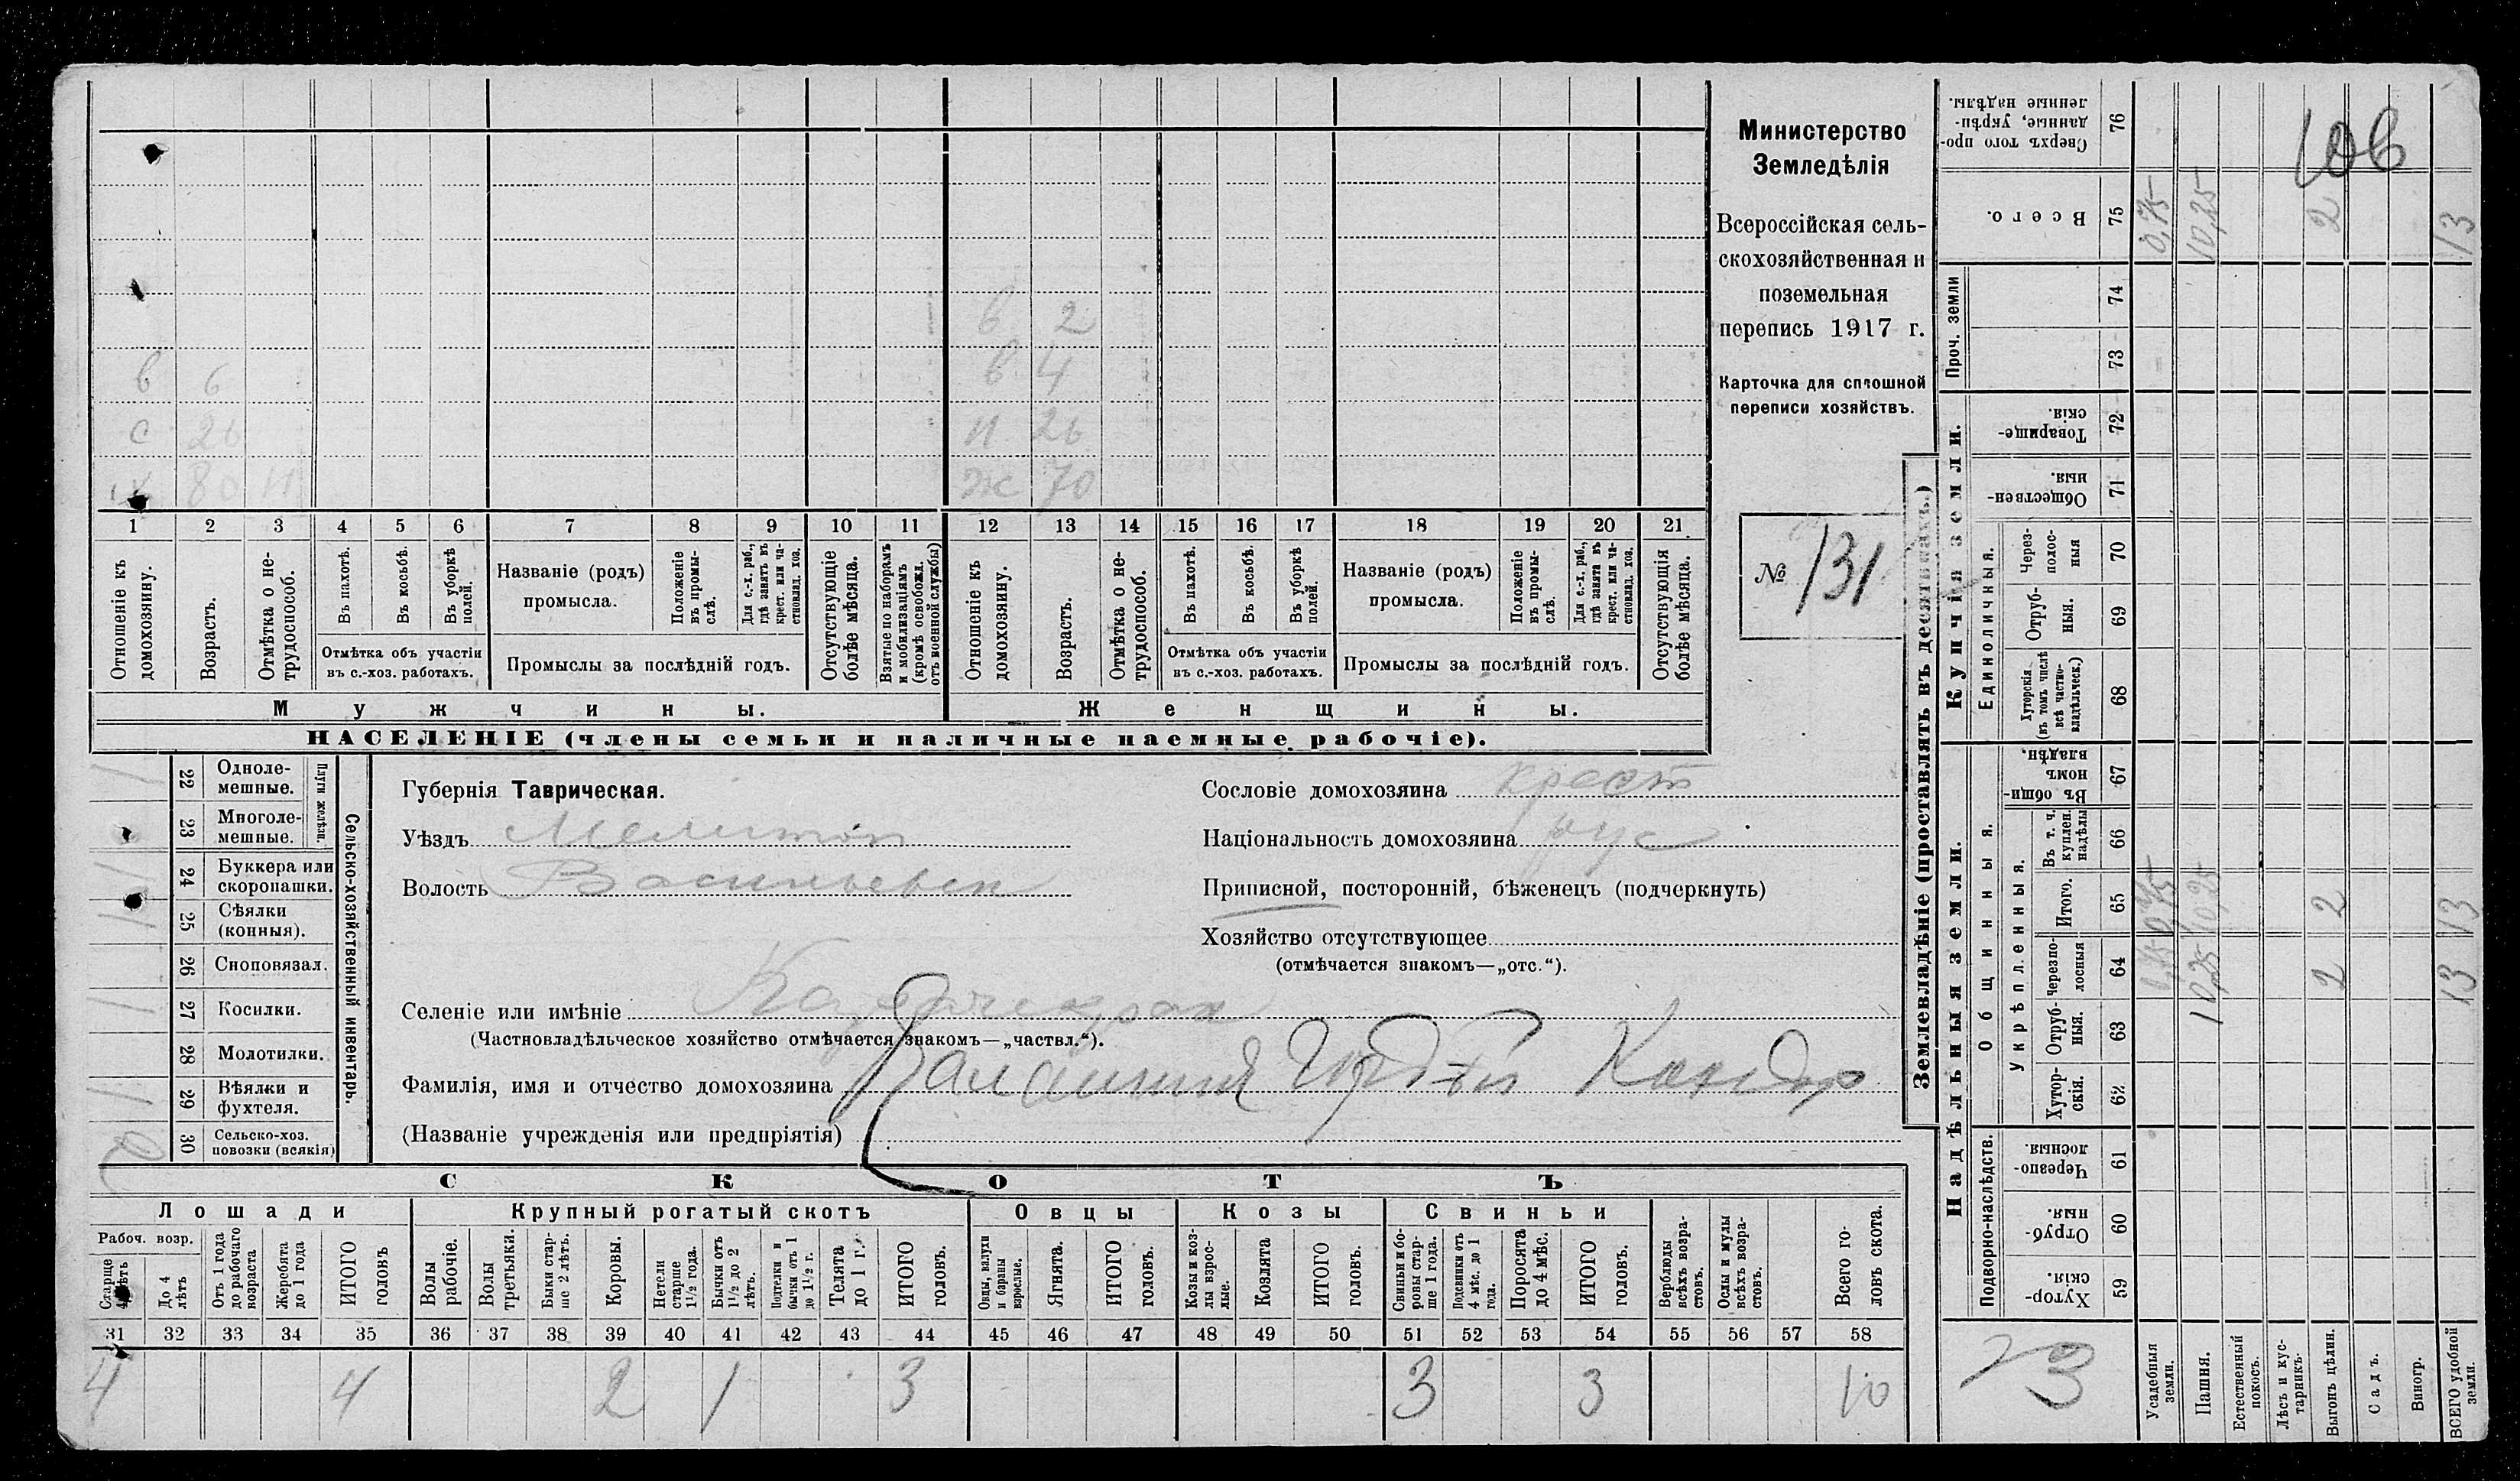 Министерство
Земледѣлія
Всероссійская сель-
скохозяйственная и
поземельная
перепись 1917 г.
Карточка для сплошной
переписи хозяйствъ.
№ 131
в 2
в 6 в 4
с 26 н 26
80 н ж 70
1 2 3 4 5 6 7 8 9 10 11 12 13 14 15 16 17 18 19 20 21
Отношеніе къ домохозяину.
Возрастъ.
Отмѣтка о не-трудоспособ.
Въ пахотѣ.
Въ косьбѣ.
Въ уборкѣ полей.
Отмѣтка объ участіи
въ с.-хоз. работахъ.
Названіе (родъ)
промысла.
Положеніе въ промы-слѣ.
Для с.-х. раб., гдѣ занятъ въ крест. или ча-стновлад. хоз.
Промыслы за послѣдній годъ.
Отсутствующіе болѣе мѣсяца.
Взятые по наборамъ и мобилизаціямъ (кромѣ освобожд. отъ военной службы)
Отношеніе къ домохозяину.
Возрастъ.
Отмѣтка о не-трудоспособ.
Въ пахотѣ.
Въ косьбѣ.
Въ уборкѣ полей.
Отмѣтка объ участіи
въ с.-хоз. работахъ.
Названіе (родъ)
промысла.
Положеніе въ промы-слѣ.
Для с.-х. раб., гдѣ занята въ крест. или ча-стновлад. хоз.
Промыслы за послѣдній годъ.
Отсутствующія болѣе мѣсяца.
Мужчины. Женщины.
НАСЕЛЕНІЕ (члены семьи и наличные наемные рабочіе).
Сельско-хозяйственный инвентарь.
Плуги желѣзн.
22 Одноле-мешные. 1
23 Многоле-мешные.
24 Буккера или скоропашки.
25 Сѣялки (конныя).
26 Сноповязал.
27 Косилки. 1
28 Молотилки.
29 Вѣялки и фухтеля. 1
30 Сельско-хоз. повозки (всякія) 2
Губернія Таврическая.
Уѣздъ Мелитоп
Волость Васильевск
Сословіе домохозяина крест
Національность домохозяина рус
Приписной, посторонній, бѣженецъ (подчеркнуть)
Хозяйство отсутствующее
(отмѣчается знакомъ—„отс.“).
Селеніе или имѣніе
(Частновладѣльческое хозяйство отмѣчается знакомъ—„частвл.“).
Фамилія, имя и отчество домохозяина
(Названіе учрежденія или предпріятія)
СКОТЪ
Лошади Крупный рогатый скотъ Овцы Козы Свиньи
Рабоч. возр.
Старше 4 лѣтъ
До 4 лѣтъ
Отъ 1 года до рабочаго возраста
Жеребята до 1 года
ИТОГО головъ
Волы рабочіе.
Волы третьяки.
Быки стар-ше 2 лѣтъ.
Коровы.
Нетели старше 1½ года.
Бычки отъ 1½ до 2 лѣтъ.
Подтелки и бычки отъ 1 до 1½ г.
Телята до 1 г.
ИТОГО головъ.
Овцы, валухи и бараны взрослые.
Ягнята.
ИТОГО головъ.
Козы и коз-лы взрос-лые.
Козлята
ИТОГО головъ.
Свиньи и бо-ровы стар-ше 1 года.
Подсвинки отъ 4 мѣс. до 1 года.
Поросята до 4 мѣс.
ИТОГО головъ.
Верблюды всѣхъ возра-стовъ.
Ослы и мулы всѣхъ возра-стовъ.
Всего го-ловъ скота.
31 32 33 34 35 36 37 38 39 40 41 42 43 44 45 46 47 48 49 50 51 52 53 54 55 56 57 58
4 4 2 1 3 3 3 10
Землевладѣніе (проставлять въ десятинахъ.)
Надѣльныя земли. Купчія земли. Проч. земли
Подворно-наслѣдств. Общинныя. Единоличныя.
Укрѣпленныя.
59 Хутор-скія.
60 Отруб-ныя.
61 Черезпо-лосныя
62 Хутор-скія.
63 Отруб-ныя.
64 Черезпо-лосныя 10,25 2 13
65 Итого. 0,75 10,25 2 13
66 Въ т. ч. куплен. надѣлы
67 Въ общин-номъ владѣн.
68 Хуторскія (въ томъ числѣ всѣ частно-владѣльческ.)
69 Отруб-ныя.
70 Через-полос-ныя
71 Обществен-ныя
72 Товарище-скія.
73
74
75 Всего. 0,75 10,25 2 13
76 Сверхъ того про-данные, укрѣп-ленные надѣлы.
Усадебныя земли.
Пашня.
Естественный покосъ.
Лѣсъ и кус-тарникъ.
Выгонъ цѣлин.
Садъ.
Виногр.
ВСЕГО удобной земли.